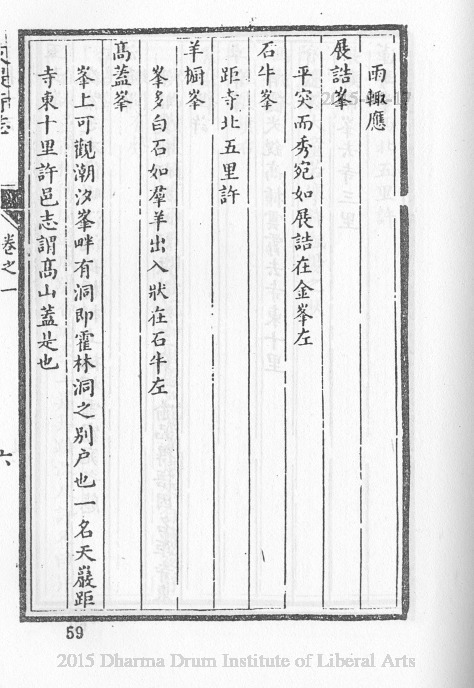 雨輙應
展誥峯
平突而秀宛如展誥在金峯左
石牛峯
距寺北五里許
羊𢊍峯
峯多白石如羣羊出入狀在石牛左
髙蓋峯
峯上可觀潮汐峯畔有洞即霍林洞之别户也一名天巖距
寺東十里許邑志謂髙山蓋是也
卷之一
六
59
2015 Dharma Drum Institute of Liberal Arts